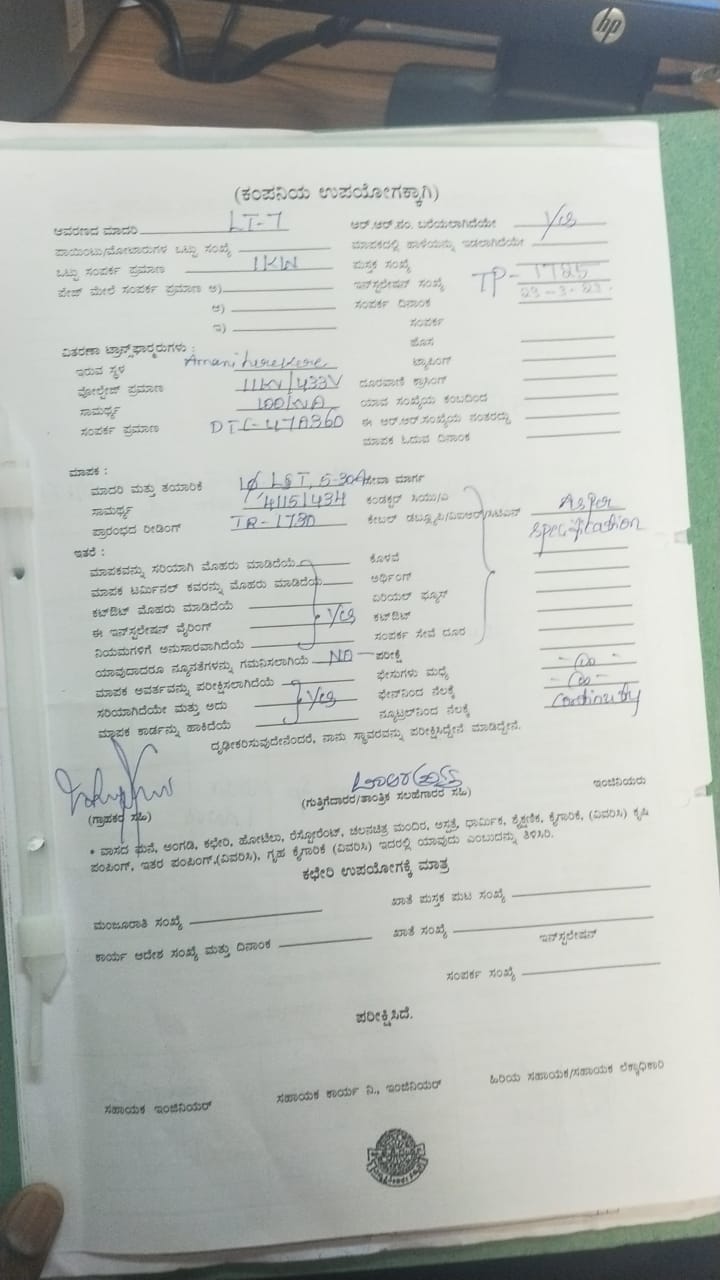 hp
(ಕಂಪನಿಯ ಉಪಯೋಗಕ್ಕಾಗಿ)
ಆವರಣದ ಮಾದರಿ LT-7 ಆರ್.ಆರ್.ನಂ. ಬರೆಯಲಾಗಿದೆಯೇ Yes
ಪಾಯಿಂಟು/ಮೋಟಾರುಗಳ ಒಟ್ಟು ಸಂಖ್ಯೆ ಮಾಪಕದಲ್ಲಿ ಹಾಳೆಯನ್ನು ಇಡಲಾಗಿದೆಯೇ
ಒಟ್ಟು ಸಂಪರ್ಕ ಪ್ರಮಾಣ 1KW ಪುಸ್ತಕ ಸಂಖ್ಯೆ
ಪೇಜ್ ಮೇಲೆ ಸಂಪರ್ಕ ಪ್ರಮಾಣ ಅ) ಇನ್‌ಸ್ಟಲೇಷನ್ ಸಂಖ್ಯೆ TP-1725
ಆ) ಸಂಪರ್ಕ ದಿನಾಂಕ 23-3-23.
ಇ) ಸಂಪರ್ಕ
ವಿತರಣಾ ಟ್ರಾನ್ಸ್‌ಫಾರ್ಮರುಗಳು : ಹೊಸ
ಇರುವ ಸ್ಥಳ ಟ್ಯಾಪಿಂಗ್
ವೋಲ್ಟೇಜ್ ಪ್ರಮಾಣ 11KV/433V ದೂರವಾಣಿ ಕ್ರಾಸಿಂಗ್
ಸಾಮರ್ಥ್ಯ 100KVA ಯಾವ ಸಂಖ್ಯೆಯ ಕಂಬದಿಂದ
ಸಂಪರ್ಕ ಪ್ರಮಾಣ DTC-47A360 ಈ ಆರ್.ಆರ್.ಸಂಖ್ಯೆಯ ನಂತರದ್ದು
ಮಾಪಕ ಓದುವ ದಿನಾಂಕ
ಮಾಪಕ :
ಮಾದರಿ ಮತ್ತು ತಯಾರಿಕೆ 1Ø L&T, 5-30A ಸೇವಾ ಮಾರ್ಗ
ಸಾಮರ್ಥ್ಯ ಕಂಡಕ್ಟರ್
ಪ್ರಾರಂಭದ ರೀಡಿಂಗ್ ಕೇಬಲ್ As per
specification
ಇತರೆ :
ಮಾಪಕವನ್ನು ಸರಿಯಾಗಿ ಮೊಹರು ಮಾಡಿದೆಯೆ ಕೊಳವೆ
ಮಾಪಕ ಟರ್ಮಿನಲ್ ಕವರನ್ನು ಮೊಹರು ಮಾಡಿದೆಯೆ ಅರ್ಥಿಂಗ್
ಕಟ್‌ಔಟ್ ಮೊಹರು ಮಾಡಿದೆಯೆ ಏರಿಯಲ್ ಫ್ಯೂಸ್
ಈ ಇನ್‌ಸ್ಟಲೇಷನ್ ವೈರಿಂಗ್ Yes ಕಟ್‌ಔಟ್
ನಿಯಮಗಳಿಗೆ ಅನುಸಾರವಾಗಿದೆಯೆ ಸಂಪರ್ಕ ಸೇವೆ ದೂರ
ಯಾವುದಾದರೂ ನ್ಯೂನತೆಗಳನ್ನು ಗಮನಿಸಲಾಗಿಯೆ NO ಪರೀಕ್ಷೆ
ಮಾಪಕ ಅವರ್ತವನ್ನು ಪರೀಕ್ಷಿಸಲಾಗಿದೆಯೆ ಫೇಸುಗಳು ಮಧ್ಯೆ
ಸರಿಯಾಗಿದೆಯೇ ಮತ್ತು ಅದು Yes ಫೇಸ್‌ನಿಂದ ನೆಲಕ್ಕೆ
ಮಾಪಕ ಕಾರ್ಡನ್ನು ಹಾಕಿದೆಯೆ ನ್ಯೂಟ್ರಲ್‌ನಿಂದ ನೆಲಕ್ಕೆ continuity
ದೃಢೀಕರಿಸುವುದೇನೆಂದರೆ, ನಾನು ಸ್ಥಾವರವನ್ನು ಪರೀಕ್ಷಿಸಿದ್ದೇನೆ ಮಾಡಿದ್ದೇನೆ.
(ಗ್ರಾಹಕರ ಸಹಿ) (ಗುತ್ತಿಗೆದಾರರ/ತಾಂತ್ರಿಕ ಸಲಹೆಗಾರರ ಸಹಿ) ಇಂಜಿನಿಯರು
• ವಾಸದ ಮನೆ, ಅಂಗಡಿ, ಕಛೇರಿ, ಹೋಟೆಲು, ರೆಸ್ಟೋರೆಂಟ್, ಚಲನಚಿತ್ರ ಮಂದಿರ, ಆಸ್ಪತ್ರೆ, ಧಾರ್ಮಿಕ, ಶೈಕ್ಷಣಿಕ, ಕೈಗಾರಿಕೆ, (ವಿವರಿಸಿ) ಕೃಷಿ
ಪಂಪಿಂಗ್, ಇತರ ಪಂಪಿಂಗ್,(ವಿವರಿಸಿ), ಗೃಹ ಕೈಗಾರಿಕೆ (ವಿವರಿಸಿ) ಇದರಲ್ಲಿ ಯಾವುದು ಎಂಬುದನ್ನು ತಿಳಿಸಿರಿ.
ಕಛೇರಿ ಉಪಯೋಗಕ್ಕೆ ಮಾತ್ರ
ಮಂಜೂರಾತಿ ಸಂಖ್ಯೆ ಖಾತೆ ಪುಸ್ತಕ ಪುಟ ಸಂಖ್ಯೆ
ಕಾರ್ಯ ಆದೇಶ ಸಂಖ್ಯೆ ಮತ್ತು ದಿನಾಂಕ ಖಾತೆ ಸಂಖ್ಯೆ
ಇನ್‌ಸ್ಟಲೇಷನ್
ಸಂಪರ್ಕ ಸಂಖ್ಯೆ
ಪರೀಕ್ಷಿಸಿದೆ.
ಸಹಾಯಕ ಇಂಜಿನಿಯರ್ ಸಹಾಯಕ ಕಾರ್ಯ ನಿ., ಇಂಜಿನಿಯರ್ ಹಿರಿಯ ಸಹಾಯಕ/ಸಹಾಯಕ ಲೆಕ್ಕಾಧಿಕಾರಿ